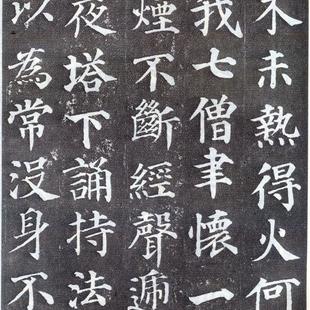 木未熱得火何
我七僧聿懷一
煙不斷經聲遞
夜塔下誦持法
以為常沒身不